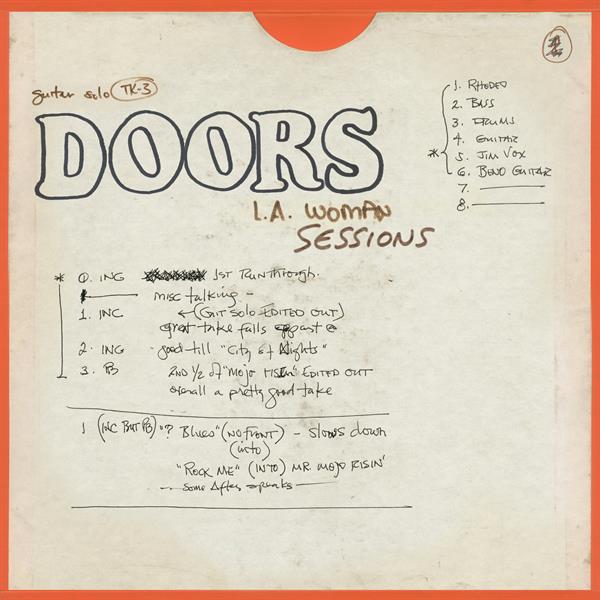 guitar solo TK-3
DOORS
L.A. WOMAN
SESSIONS
1. RHODES
2. BASS
3. DRUMS
4. GUITAR
* 5. JIM VOX
6. BEND GUITAR
7.
8.
* 0. ING 1ST RUNTHROUGH.
misc talking -
1. INC ←(GIT SOLO EDITED OUT)
great take falls apart @
2. ING good till "City of Nights"
3. PB 2ND 1/2 of "MOJO RISIN" EDITED OUT
overall a pretty good take
1 (INC BUT PB) "? Blues" (NO FRONT) - slows down
(into)
"ROCK ME" (INTO) MR MOJO RISIN'
- some After speaks -